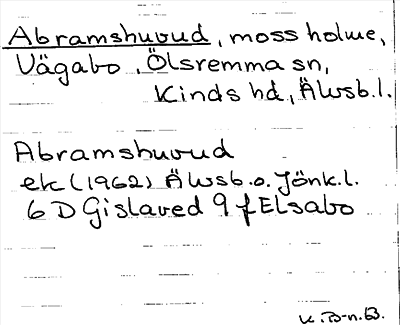 Abramshuvud, mossholme,
Vägabo, Ölsremma sn,
Kinds hd, Älvsb.l.
Abramshuvud
ek (1962) Älvsb.o.Jönk.l.
6 D Gislaved 9 f Elsabo
K.B-n.63.